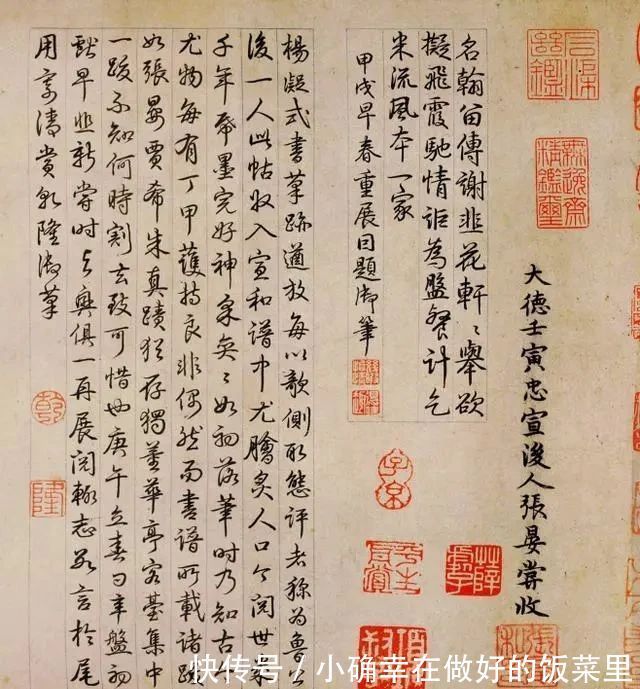 無逸齋
精鑑璽
大德壬寅忠宣後人張晏嘗收
名翰留傳謝韭花軒〻舉欲
擬飛霞馳情詎為盤餐計乞
米流風本一家
甲戌早春重展因題御筆
子京
楊凝式書草跡遒放每以欹側取態評者稱為魯公
後一人此帖收入宣和譜中尤膾炙人口今閱世幾
千年帋墨完好神采奕〻如初落筆時乃知古人
尤物每有丁甲護持良非偶然而書譜所載諸跋
如張晏賈希朱真蹟猶存獨董華亭容臺集中
一跋不知何時割去致可惜也庚午立春日辛盤初
獻早韭新嘗時與興俱一再展閱輒志數言於尾
用寄清賞乾隆御筆
乾
隆
快传号 / 小确幸在做好的饭菜里